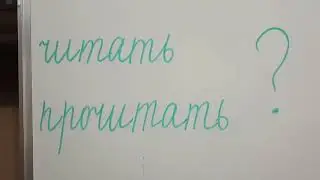 читать
прочитать ?